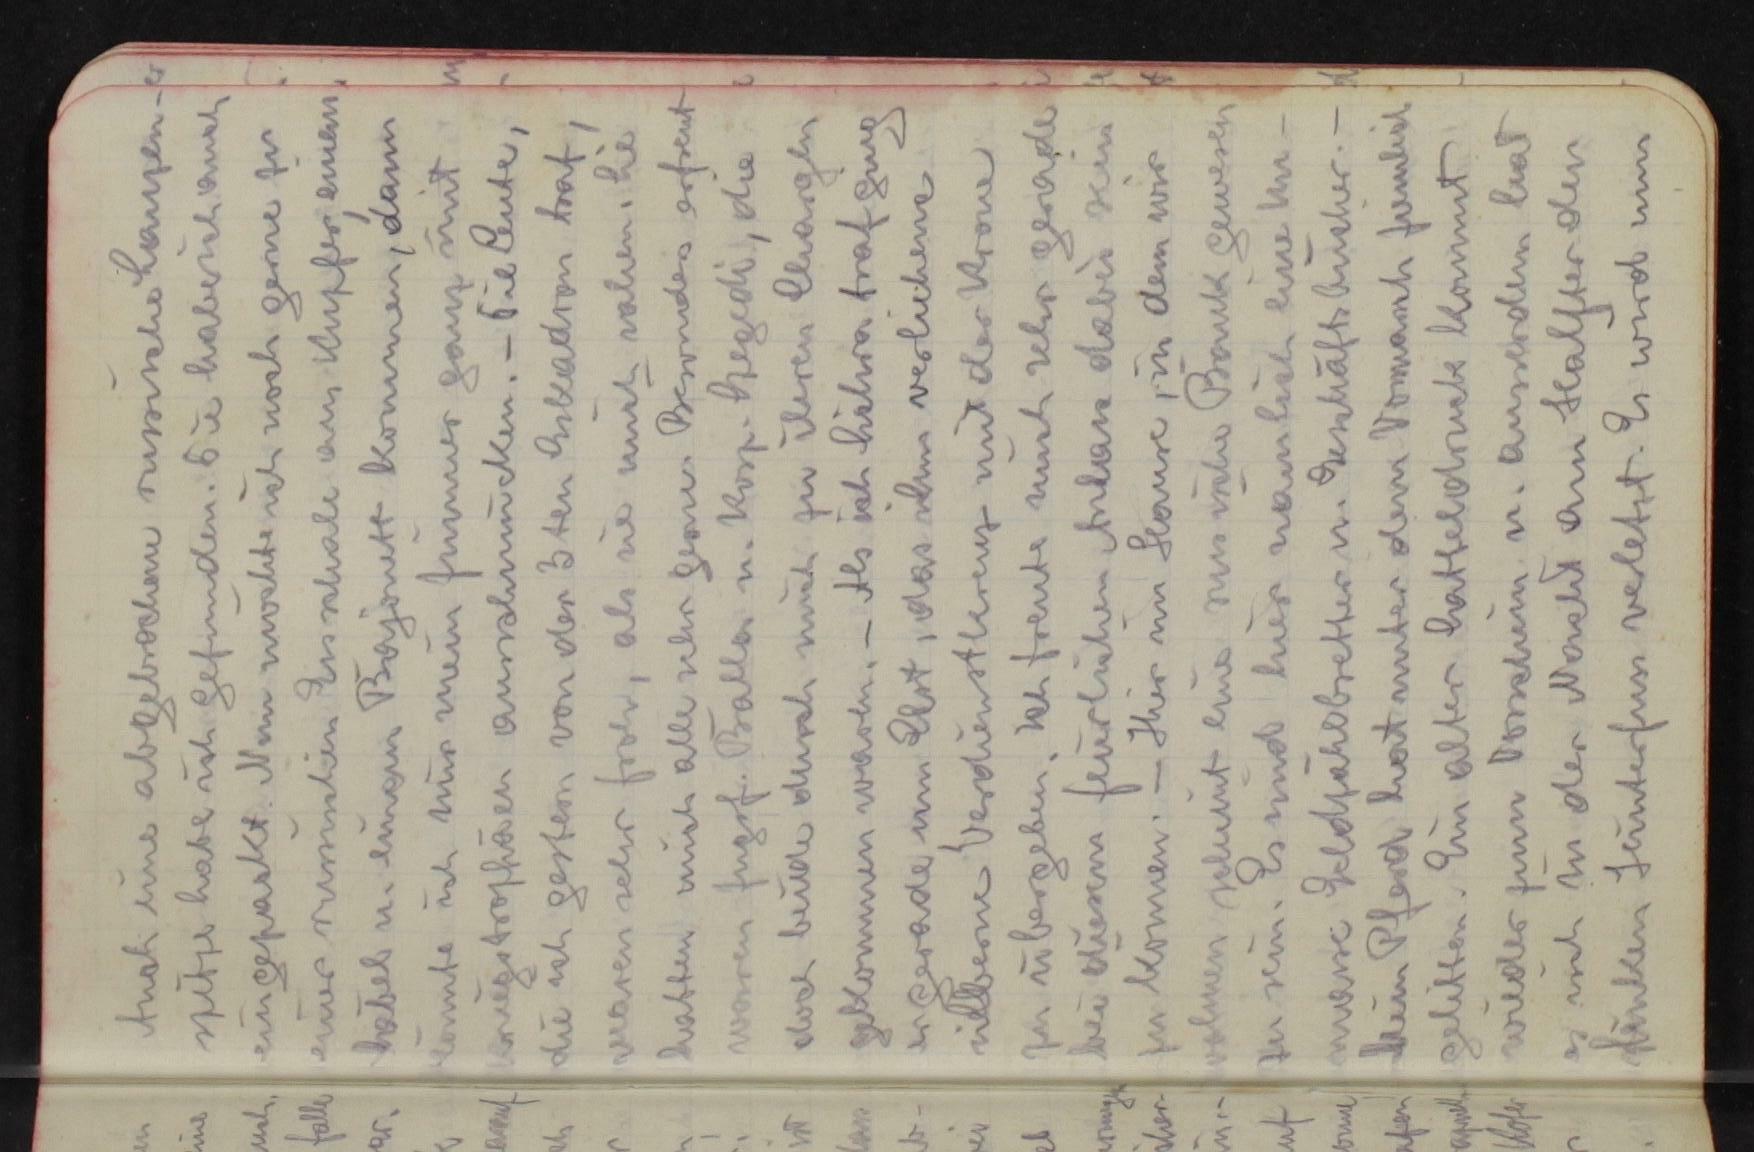 Auch eine abgebrochene russische Lanzen-
spitze habe ich gefunden. Sie habe ich auch
eingepackt. Nun möchte ich noch gerne zu
einer russischen Essschale aus Kupfer, einem
Säbel u. einem Bajonett kommen, dann
könnte ich mir mein Zimmer ganz mit
Kriegstrophäen ausschmücken. – Die Leute,
die ich gestern von der 3ten Eskadron traf,
waren sehr froh, als sie mich sahen. Sie
hatten mich alle sehr gern. Besonders erfreut
waren Zugsf. Balla u. Korp. Szegedi, die
doch beide durch mich zu ihren Chargen
gekommen waren. – Als ich hieher traf ging
er gerade um Obst, das ihm verliehene
silberne Verdienstkreuz mit der Krone
zu übergeben. Ich freute mich sehr gerade
bei diesem feierlichen Anlass dabei sein
zu können. – Hier im Hause, in dem wir
wohnen scheint eine russische Bank gewesen
zu sein. Es sind hier nämlich eine Un-
masse Geldfächer u. Geschäftsbücher. –
Mein Pferd hat unter dem Vormarsch ziemlich
gelitten. Ein alter Satteldruck kommt
wieder zum Vorschein u. ausserdem hat
es sich in der Nacht am Halfter den
linken Hinterfuss verletzt. Es wird nun